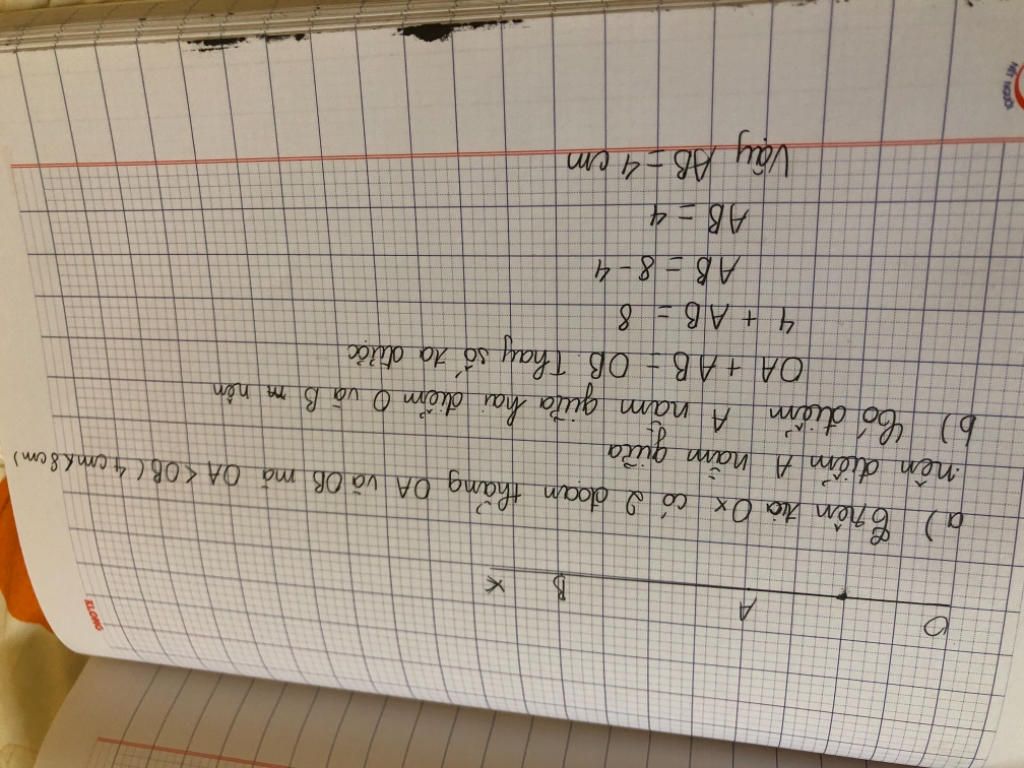 O A B x
a) Trên tia Ox có 2 đoạn thẳng OA và OB mà OA < OB (4cm < 8cm)
nên điểm A nằm giữa
b) Có điểm A nằm giữa hai điểm O và B m nên
OA + AB = OB. Thay số ta được
4 + AB = 8
AB = 8 - 4
AB = 4
Vậy AB = 4 cm
KLONG
NÉT NGƯỜI